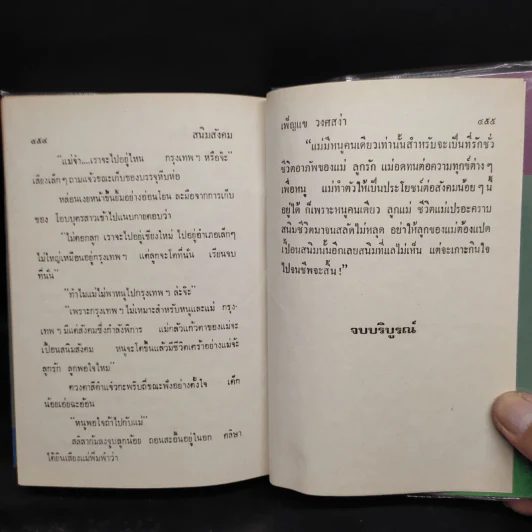 ๔๕๔ สนิมสังคม
"แม่จ๋า....เราจะไปอยู่ไหน กรุงเทพ ๆ หรือจ๊ะ"
เสียงเล็ก ๆ ถามแจ้วขณะเก็บของบรรจุหีบห่อ
หล่อนเงยหน้าขึ้นยิ้มอย่างอ่อนโยน ละมือจากการเก็บ
ของ โอบบุตรสาวเข้าไปแนบกายตอบว่า
"ไม่ดอกลูก เราจะไปอยู่เชียงใหม่ ไปอยู่อำเภอเล็กๆ
ไม่ใหญ่เหมือนอยู่กรุงเทพ ๆ แต่ลูกจะโตที่นั่น เรียนจบ
ที่นั่น"
"ทำไมแม่ไม่พาหนูไปกรุงเทพ ๆ ล่ะจ๊ะ"
"เพราะกรุงเทพ ๆ ไม่เหมาะสำหรับหนูและแม่ กรุง-
เทพ ๆ มีแต่สังคมซึ่งกำลังพิการ แม่กลัวแก้วตาของแม่จะ
เปื้อนสนิมสังคม หนูจะโตขึ้นแล้วมีชีวิตเศร้าอย่างแม่จ้ะ
ลูกรัก ลูกพอใจไหม"
ดวงตาสีดำแจ๋วกะพริบถี่ขณะฟังอย่างตั้งใจ เด็ก
น้อยเอ่ยฉะอ้อน
"หนูพอใจถ้าไปกับแม่"
สลิตาก้มลงจูบลูกน้อย ถอนสะอื้นอยู่ในอก คลิษา
ได้ยินเสียงแม่พึมพำว่า
เพ็ญแข วงศ์สง่า ๔๕๕
"แม่มีหนูคนเดียวเท่านั้นสำหรับจะเป็นที่รักชั่ว
ชีวิตอาภัพของแม่ ลูกรัก แม่อดทนต่อความทุกข์ต่าง ๆ
เพื่อหนู แม่ทำตัวให้เป็นประโยชน์ต่อสังคมน้อย ๆ นี้
อยู่ได้ ก็เพราะหนูคนเดียว ลูกแม่ ชีวิตแม่เปรอะคราบ
สนิมชีวิตมาจนสลัดไม่หลุด อย่าให้ลูกของแม่ต้องแปด
เปื้อนสนิมนั้นอีกเลยสนิมที่แลไม่เห็น แต่จะเกาะกินใจ
ไปจนชีพจะสิ้น!"
จบบริบูรณ์